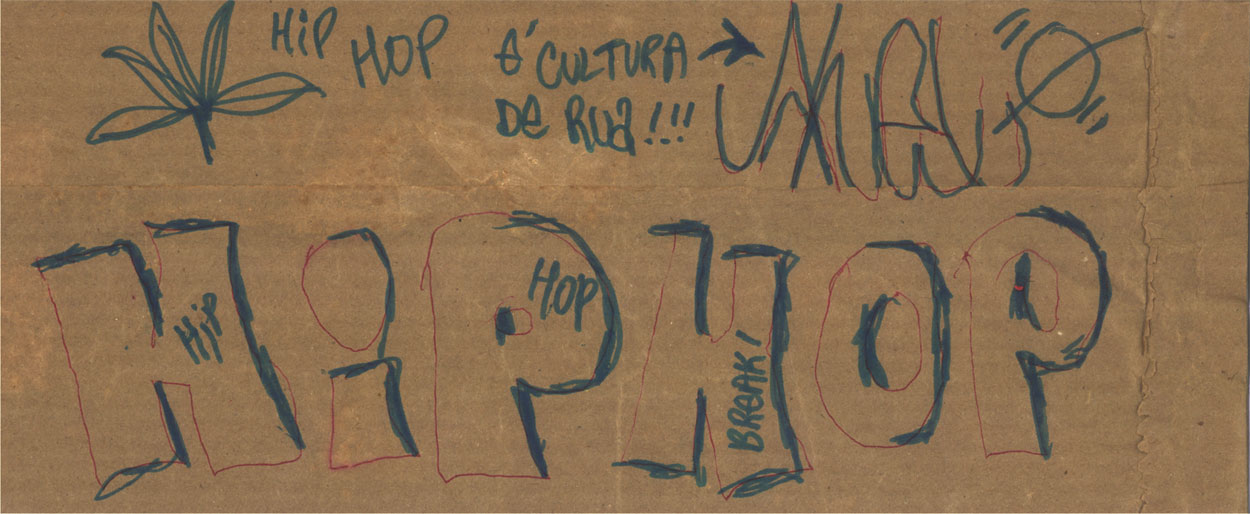 HiP HOP é CULTURA
DE RUA!!!
HiPHOP
HiP
HOP
BREAK!